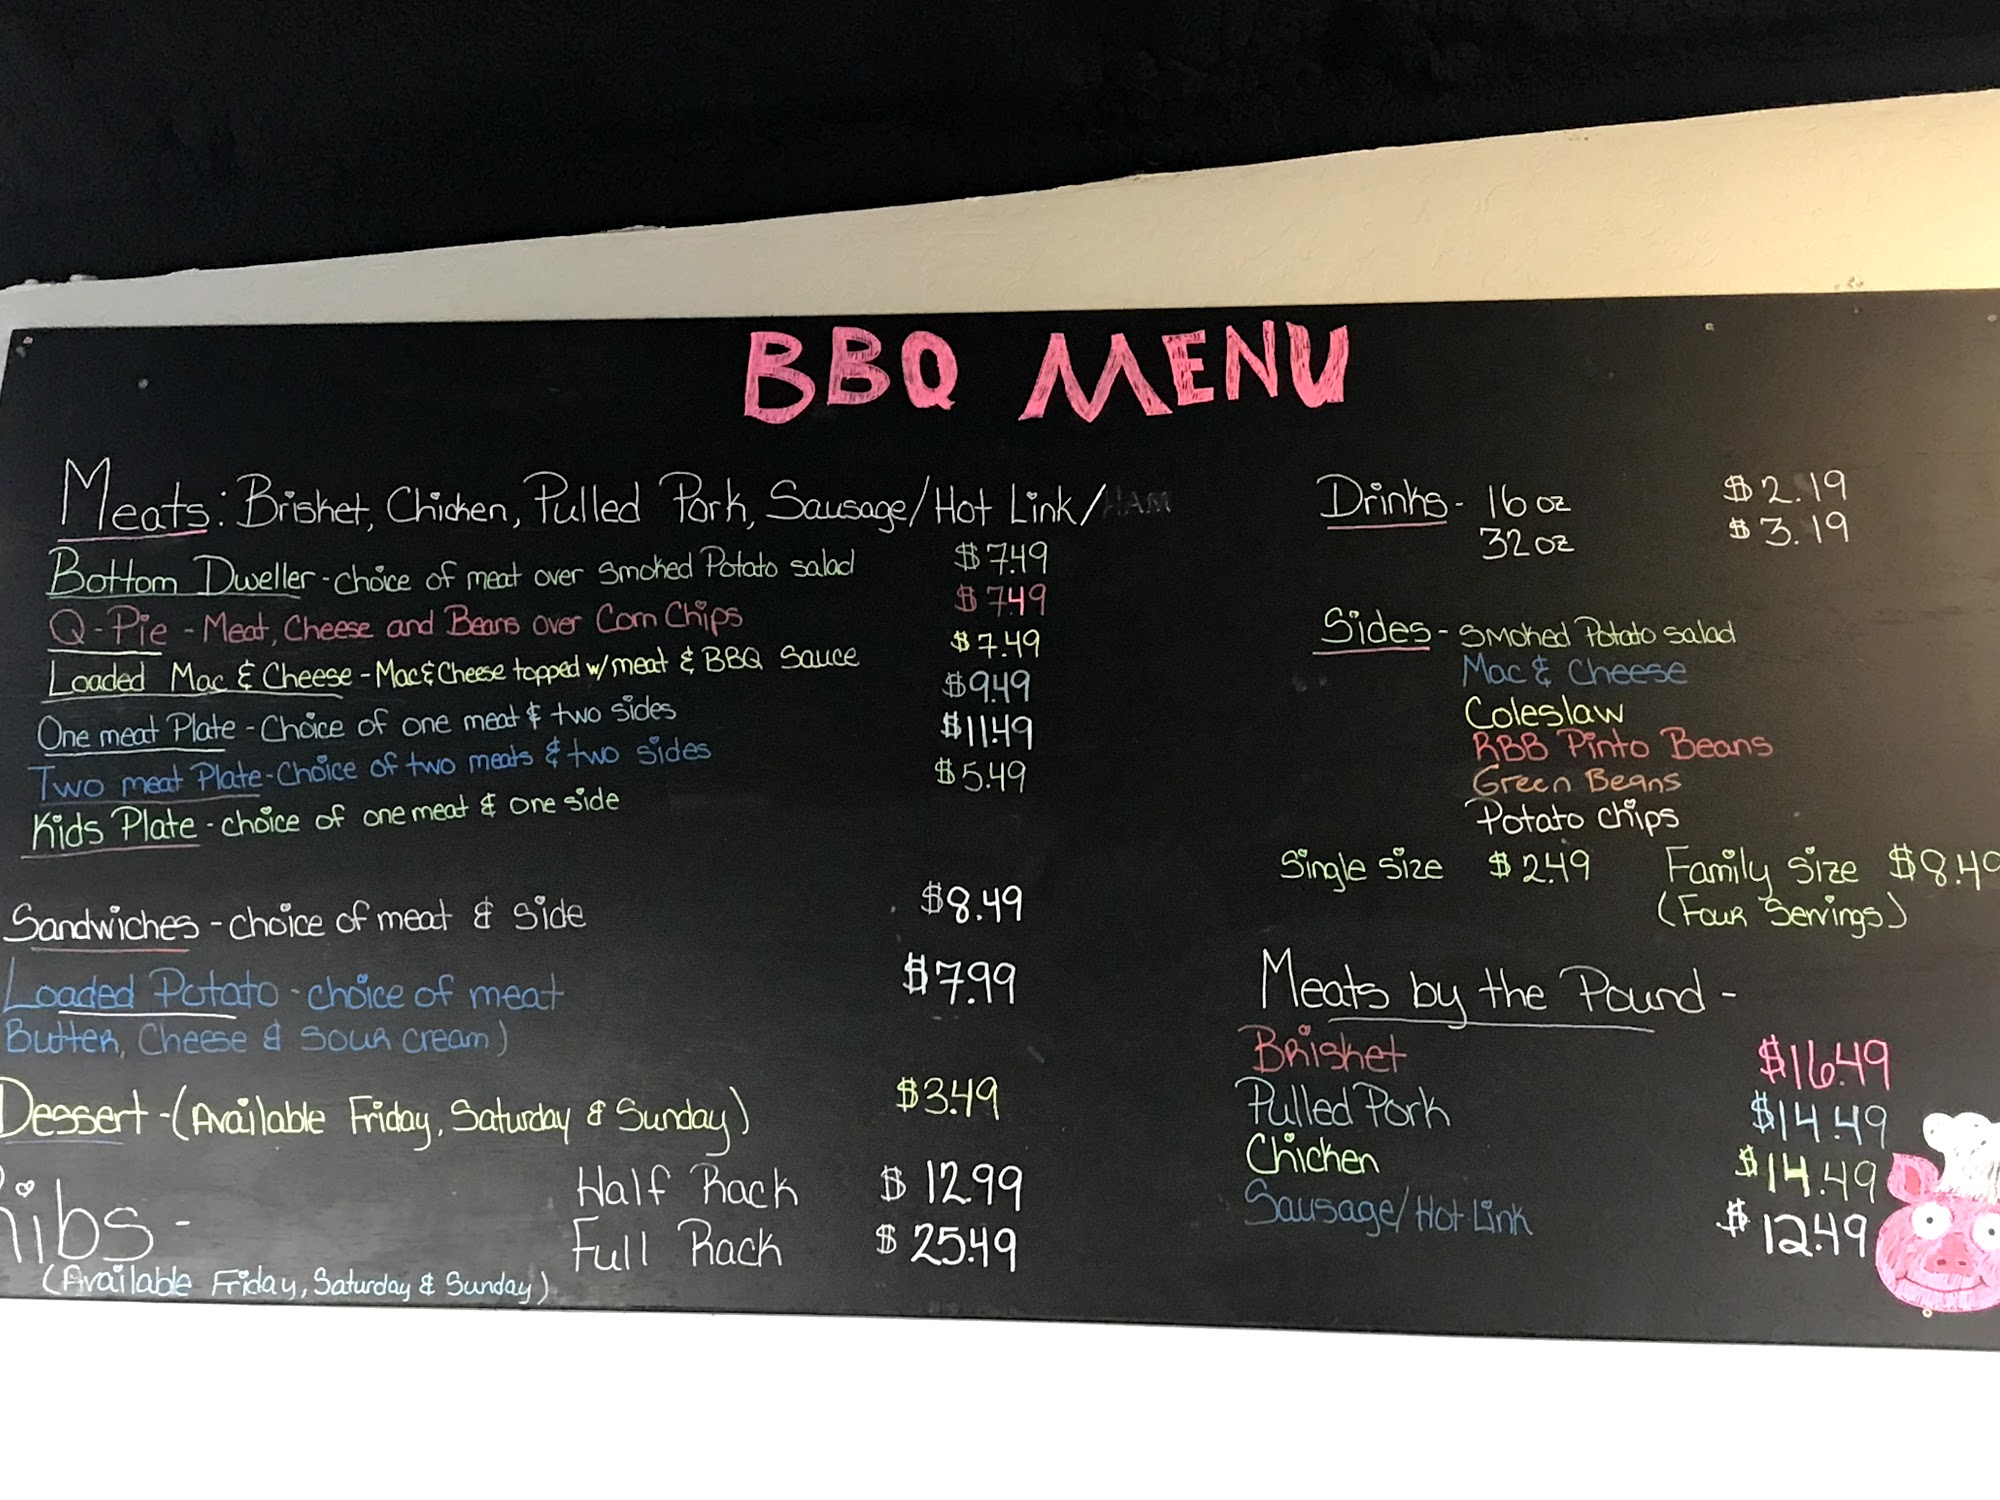 BBQ MENU
Meats: Brisket, Chicken, Pulled Pork, Sausage/Hot Link/HAM
Bottom Dweller - choice of meat over Smoked Potato salad $7.49
Q-Pie - Meat, Cheese and Beans over Corn Chips $7.49
Loaded Mac & Cheese - Mac & Cheese topped w/ meat & BBQ Sauce $7.49
One meat Plate - Choice of one meat & two sides $9.49
Two meat Plate - Choice of two meats & two sides $11.49
Kids Plate - choice of one meat & one side $5.49
Sandwiches - choice of meat & Side $8.49
Loaded Potato - choice of meat $7.99
Butter, Cheese & Sour cream)
Dessert - (Available Friday, Saturday & Sunday) $3.49
Ribs - Half Rack $12.99
Full Rack $25.49
(Available Friday, Saturday & Sunday)
Drinks - 16 oz $2.19
32 oz $3.19
Sides - Smoked Potato Salad
Mac & Cheese
Coleslaw
RBB Pinto Beans
Green Beans
Potato chips
Single Size $2.49 Family Size $8.49
(Four Servings)
Meats by the Pound -
Brisket $16.49
Pulled Pork $14.49
Chicken $14.49
Sausage/Hot Link $12.49